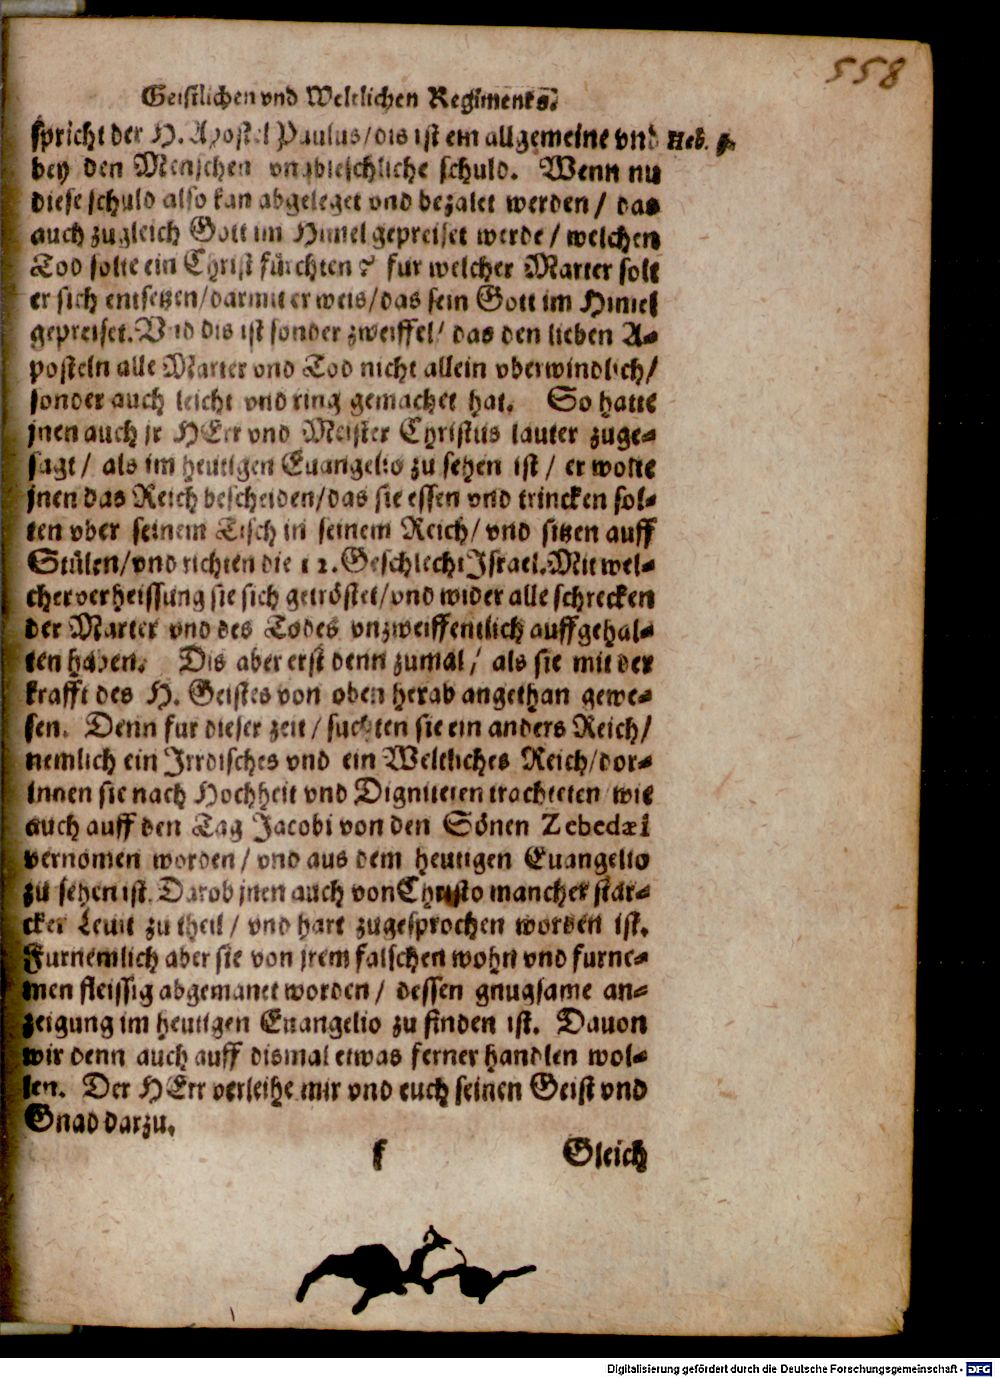 558
Geistlichen vnd Weltlichen Regiments.
spricht der H. Apostel Paulus/dis ist ein allgemeine vnd Heb. 9.
bey den Menschen vnableschliche schuld. Wenn nu
diese schuld also kan abgeleget vnd bezalet werden / das
auch zugleich Gott im Himel gepreiset werde / welchen
Tod solte ein Christ fürchten? fur welcher Marter solt
er sich entsetzen/darmit er weis/das sein Gott im Himel
gepreiset. Vnd dis ist sonder zweiffel/ das den lieben A-
posteln alle Marter vnd Tod nicht allein vberwindlich/
sonder auch leicht vnd ring gemachet hat. So hatte
jnen auch jr HErr vnd Meister Christus lauter zuge-
sagt / als im heutigen Euangelio zu sehen ist / er wolte
jnen das Reich bescheiden/das sie essen vnd trincken sol-
ten vber seinem Tisch in seinem Reich/ vnd sitzen auff
Stülen/vnd richten die 12. Geschlecht Israel. Mit wel-
cher verheissung sie sich getröstet/vnd wider alle schrecken
der Marter vnd des Todes vnzweiffentlich auffgehal-
ten haben. Dis aber erst denn zumal / als sie mit der
krafft des H. Geistes von oben herab angethan gewe-
sen. Denn fur dieser zeit / suchten sie ein anders Reich/
nemlich ein Irrdisches vnd ein Weltliches Reich/dor-
innen sie nach Hochheit vnd Digniteten trachteten wie
auch auff den Tag Jacobi von den Sönen Zebedæi
vernomen worden / vnd aus dem heutigen Euangelio
zu sehen ist. Darob jnen auch von Christo mancher star-
cker Leuit zu theil / vnd hart zugesprochen worden ist.
Furnemlich aber sie von jrem falschen wohn vnd furne-
men fleissig abgemanet worden / dessen gnugsame an-
zeigung im heutigen Euangelio zu finden ist. Dauon
wir denn auch auff dismal etwas ferner handlen wol-
len. Der HErr verleihe mir vnd euch seinen Geist vnd
Gnad darzu.
f Gleich
Digitalisierung gefördert durch die Deutsche Forschungsgemeinschaft - DFG